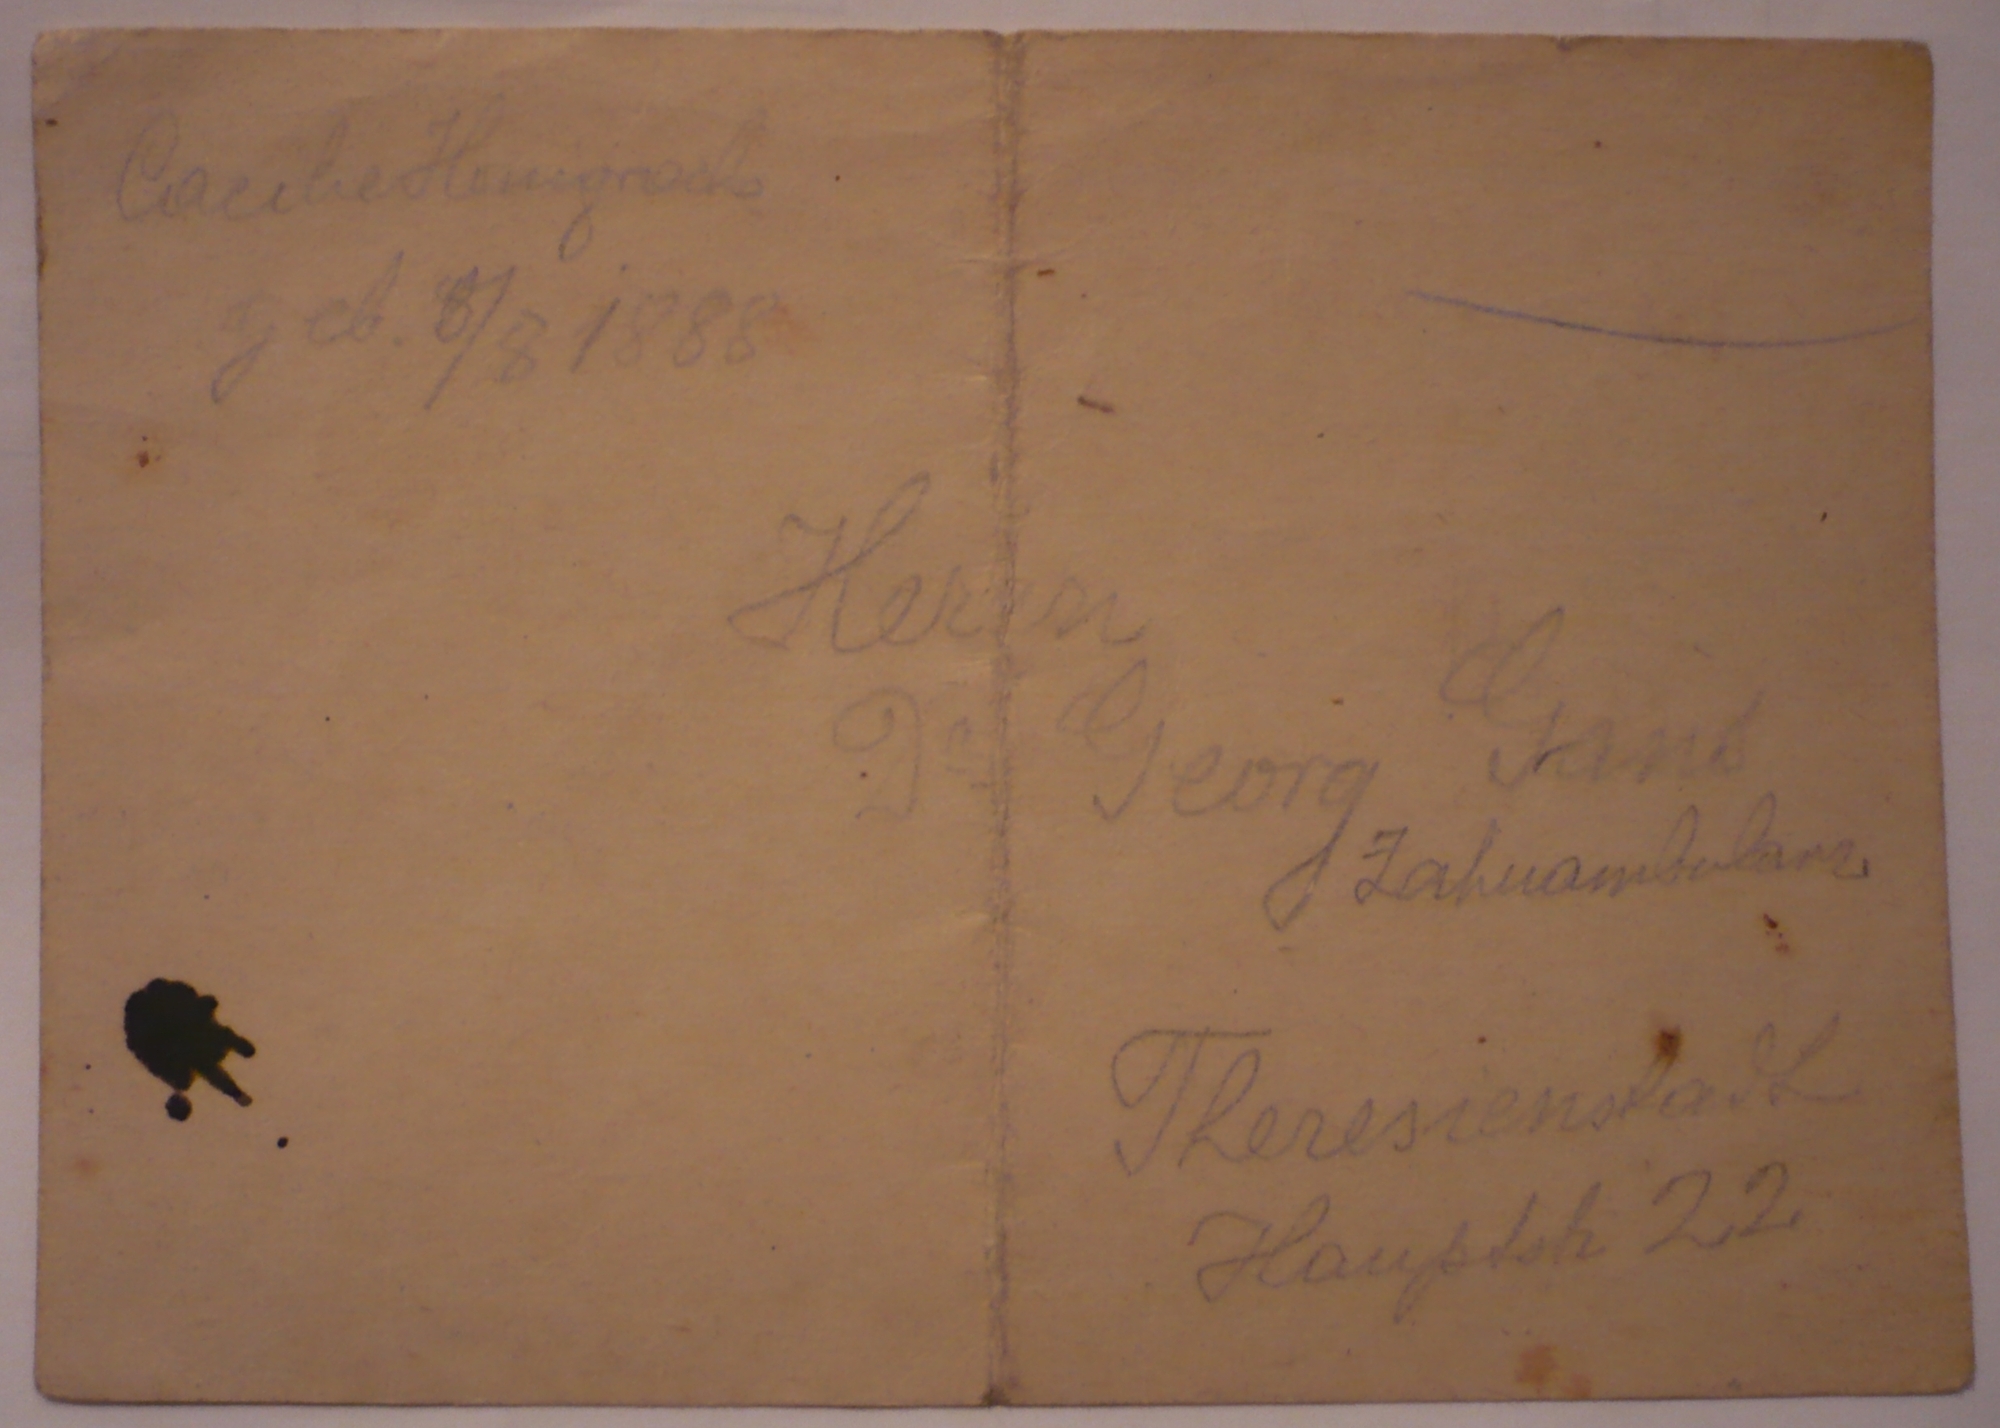 Caecilie Honigwachs
geb. 8/8 1888
Herrn
Dr. Georg
Zahnambulanz
Theresienstadt
Hauptstr 22